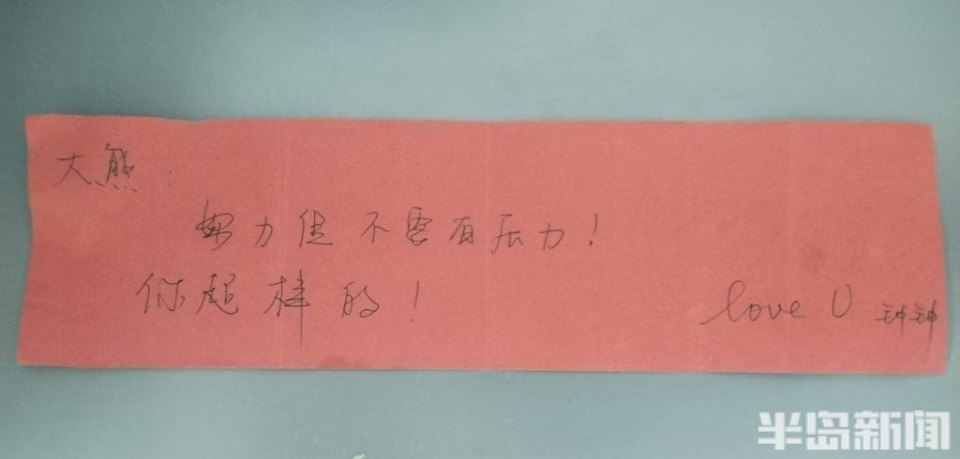 大熊：
努力但不要有压力！
你超棒的！
love U 钟钟
半岛新闻